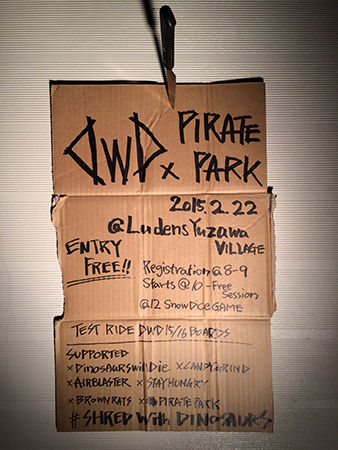 DWD x PIRATE PARK
2015.2.22
@LudensYuzawa
VILLAGE
ENTRY
FREE!!
Registration@8-9
Starts@10-Free
Session
@12 SnowDiceGAME
TEST RIDE DWD 15/16 BOARDS
SUPPORTED
×DinosaursWillDie ×CANDYGRIND
×AIRBLASTER ×STAYHUNGRY
×BROWNRATS ×PIRATEPARK
#SHRED WITH DINOSAURS